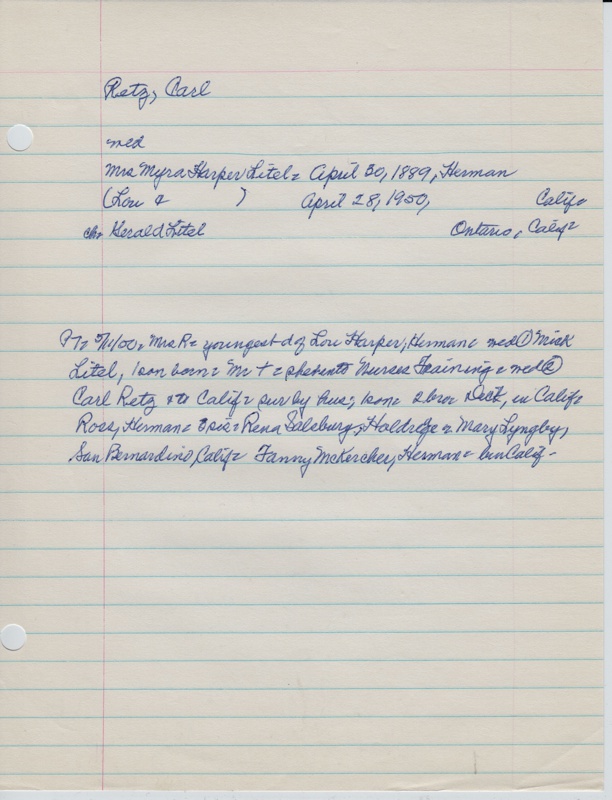 Retz, Carl
med
Mrs Myra Harper Litel = April 30, 1889, Herman
(Lou & ) April 28, 1950, Calif=
ch= Gerald Litel Ontario, Calif=
Mrs R= youngest d of Lou Harper, Herman= med ① Mick
Litel, 1 son born = Mr + = she into Nurses Training = med ②
Carl Retz & to Calif= sur by hus, 1 son = 2 bro= Dick, in Calif=
Ross, Herman= sis= Rena Salsburg, Holdrege = Mary Lyngby,
San Bernardino, Calif= Fanny McKercher, Herman= bu Calif-